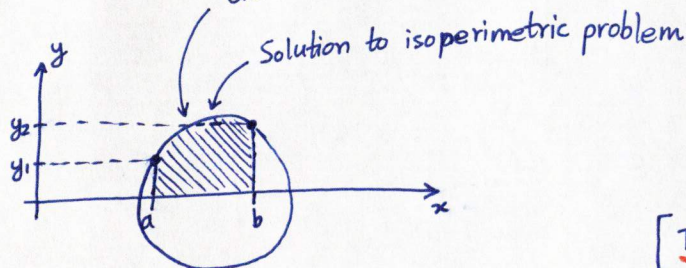 Solution to isoperimetric problem
y
y₂
y₁
a
b
x
[